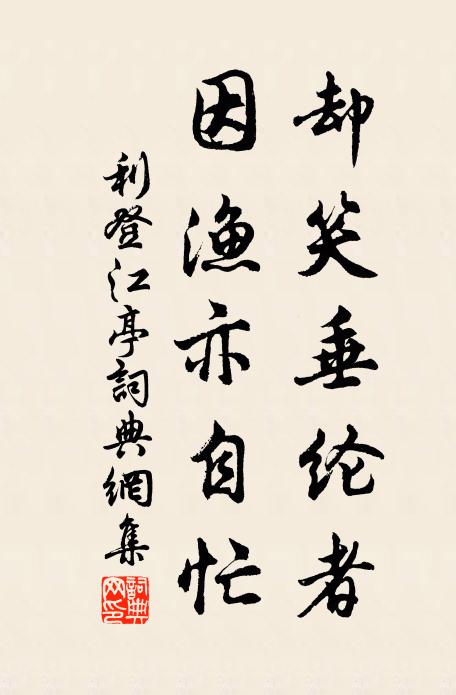 却笑垂纶者
因渔亦自忙
利登江亭詞典網集
詞典
网印